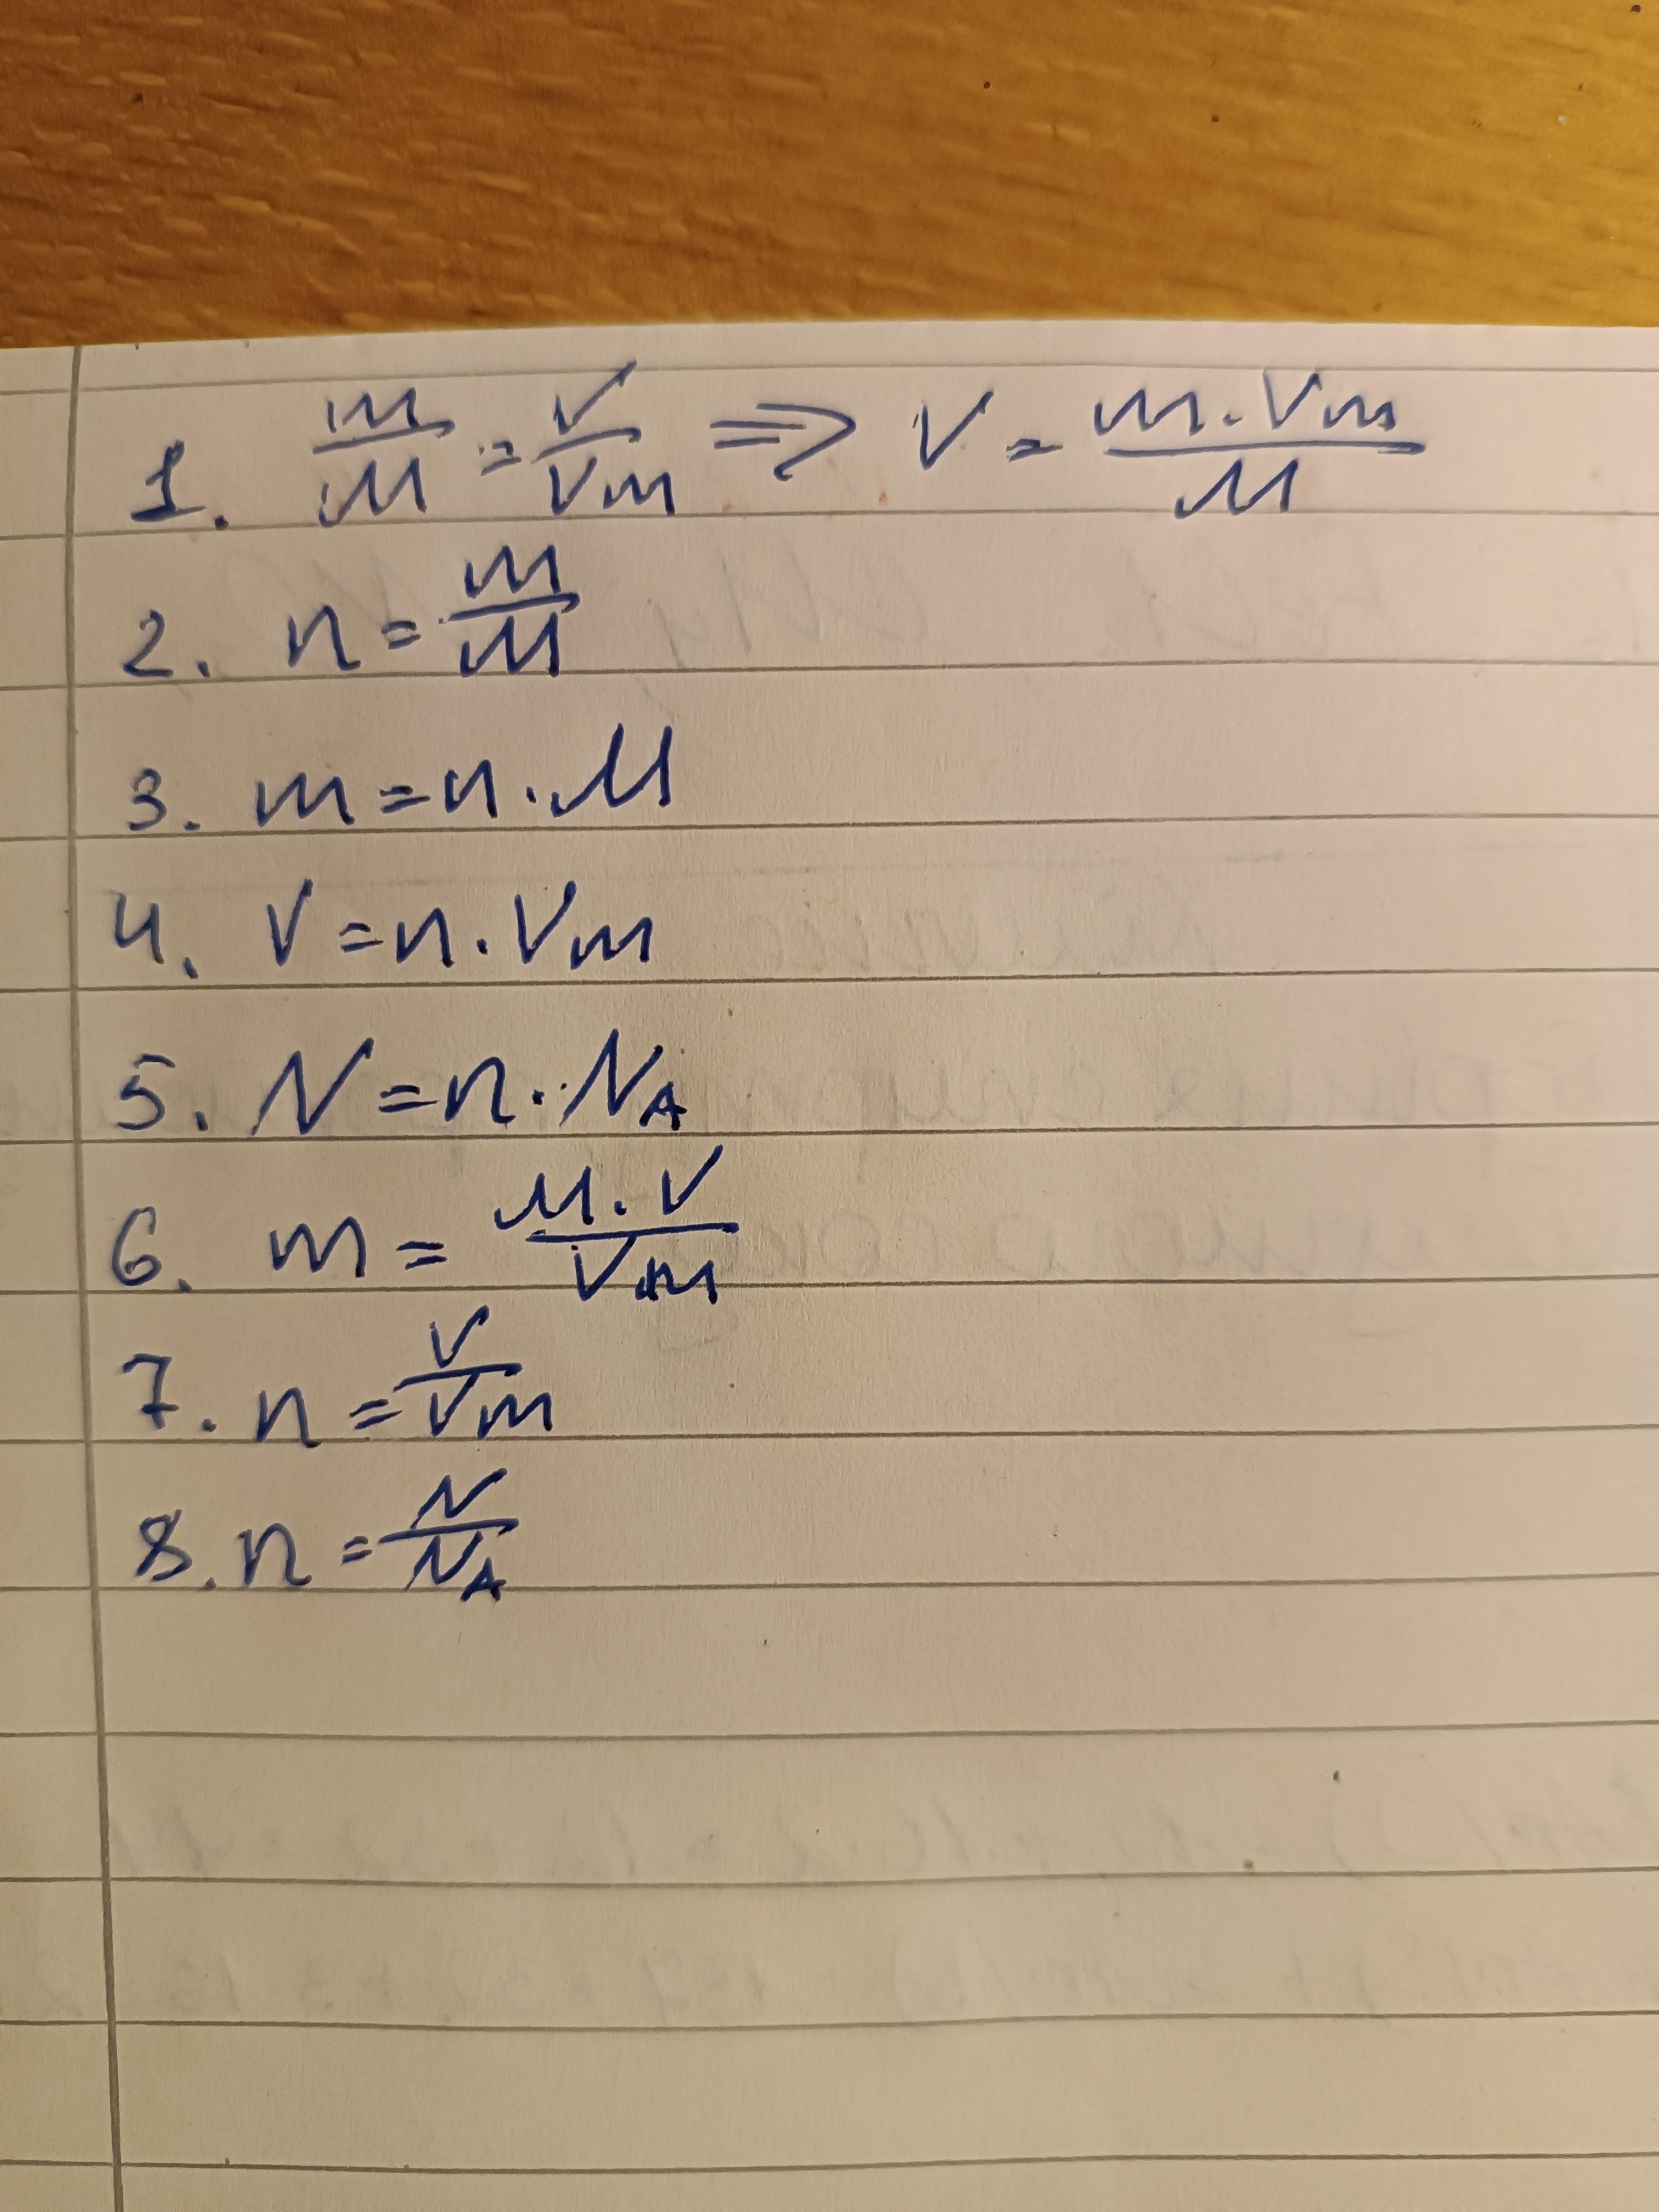 1. m/M = V/Vm ⇒ V = m·Vm/M
2. n = m/M
3. m = n·M
4. V = n·Vm
5. N = n·N_A
6. m = M·V/Vm
7. n = V/Vm
8. n = N/N_A